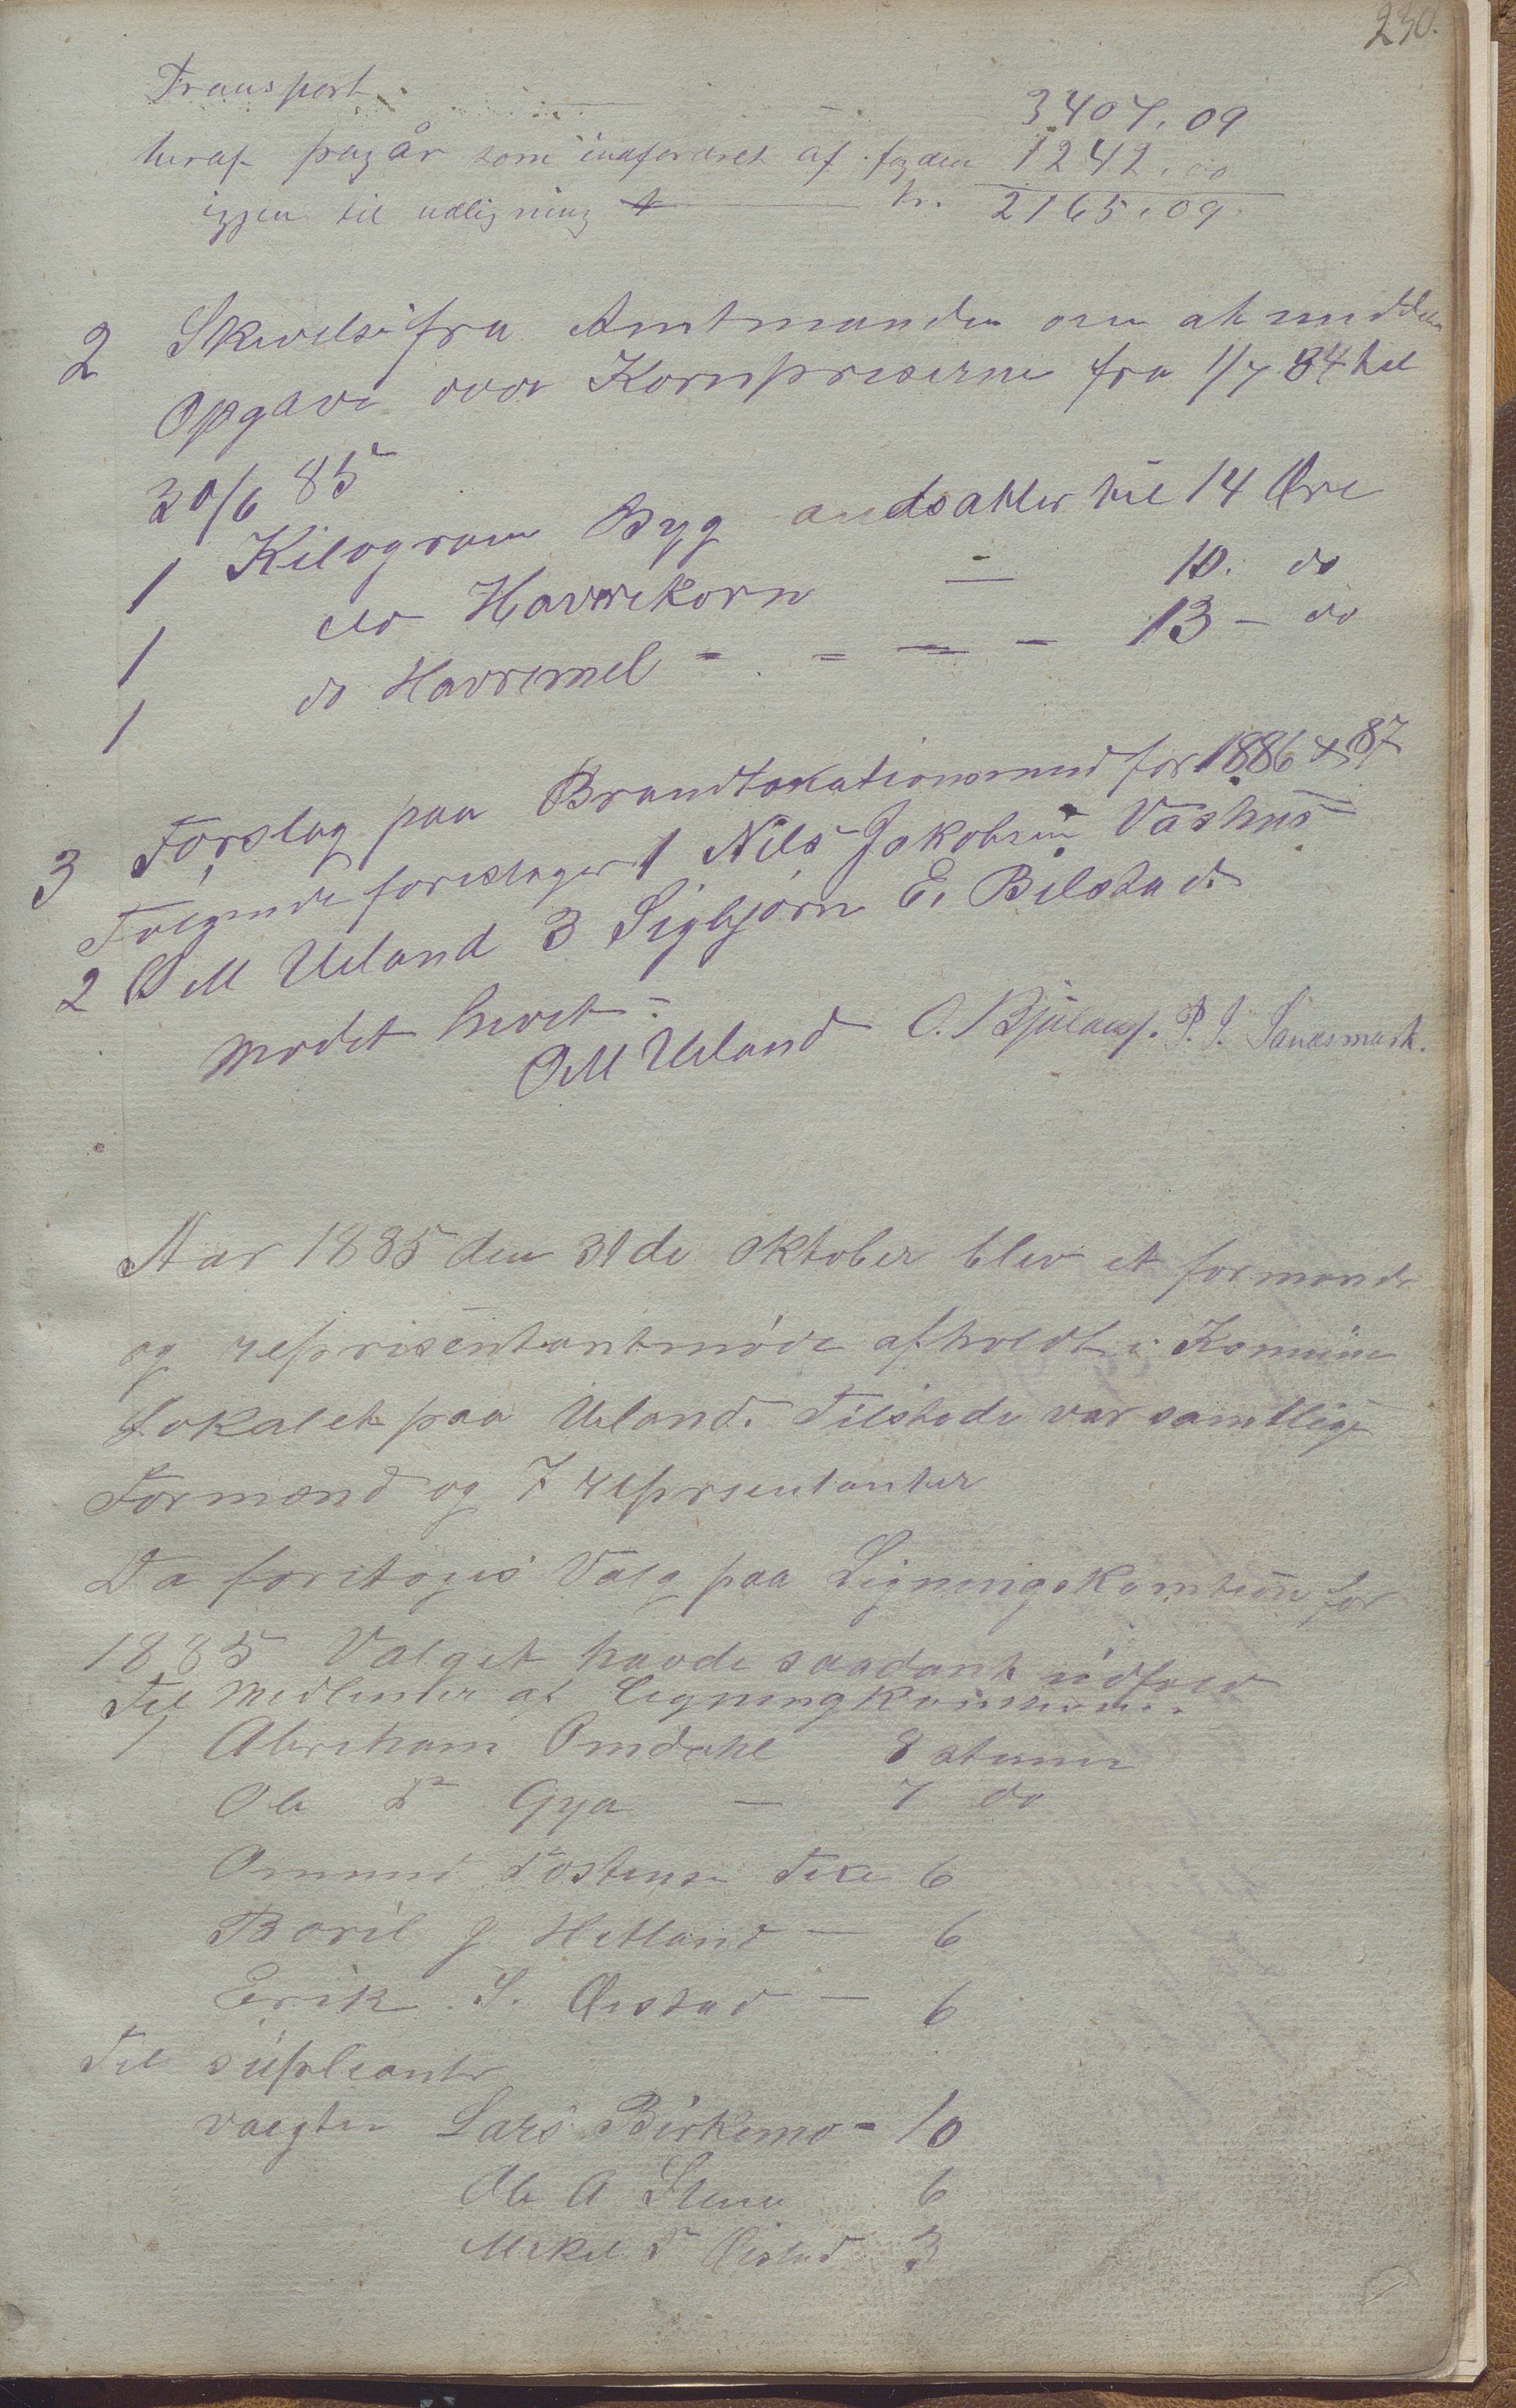 230.
Transport 3407,09
heraf pagår som indfordret af fogden 1242,00
igjen til udligning kr. 2165,09
2 Skrivelse fra Amtmanden om at meddele
Opgave over Kornpriserne fra 1/7 84 til
30/6 85
1 Kilogram Byg andsatter til 14 Øre
1 do Havrekorn — 10. do
1 do Havremel - - - - 13 - do
3 Forslag paa Brandtakationsmend for 1886 & 87
Følgende foreslages 1 Nils Jakobsen Vashus
2 O M Ueland 3 Sigbjørn E. Bilstad
Mødet hevet -
O M Ueland O. Bjuland. P. J. Sandsmark.
Aar 1885 den 31 de oktober blev et formands
og representantmøde afholdt i Komune
Lokalet paa Ueland. Tilstede var samtlige
Formænd og 7 reprsentanter
Da foretoges Valg paa Ligningskomtion for
1885 Valget havde saadant udfald
Til Medlemer af Ligningkomisionen.
1 Abraham Omdahl 8 stemer
Ole T Gya — 7 do
Omund Tostensen 6
Boril J Hetland — 6
Erik S. Ørstad — 6
Til supleanter
valgtes Lars Birkemo - 10
Ole A Stene 6
Mikel T 3